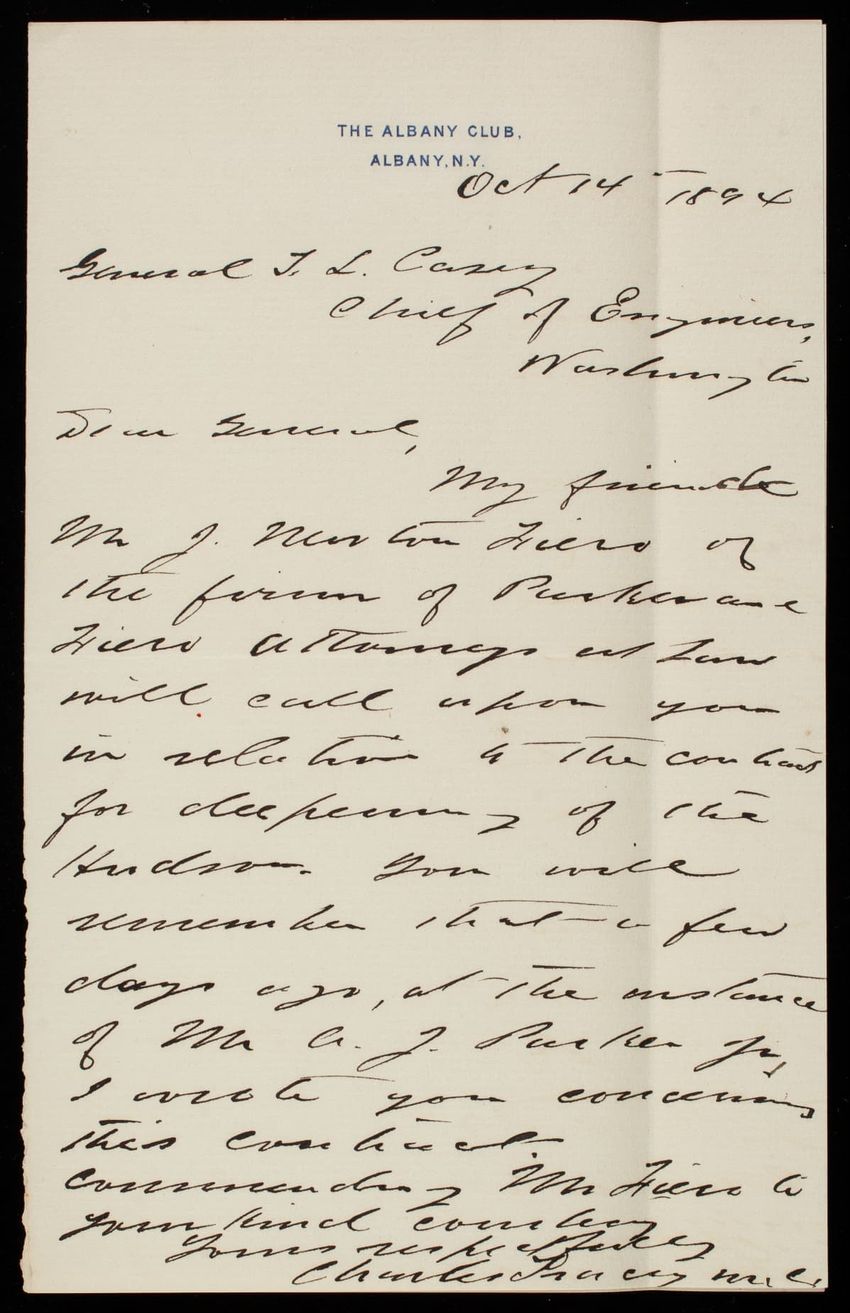 THE ALBANY CLUB,
ALBANY, N.Y.
Oct 14 - 1894
General T. L. Casey
Chief of Engineers,
Washington
Dear General,
My friend
Mr J. Newton Fiero of
the firm of Parker and
Fiero attorneys at Law
will call upon you
in relation to the contract
for deepening of the
Hudson. You will
remember that a few
days ago, at the instance
of Mr A. J. Parker Jr,
I wrote you concerning
this contract
commending Mr Fiero to
your kind courtesy
Yours respectfully
Charles Tracey M.C.